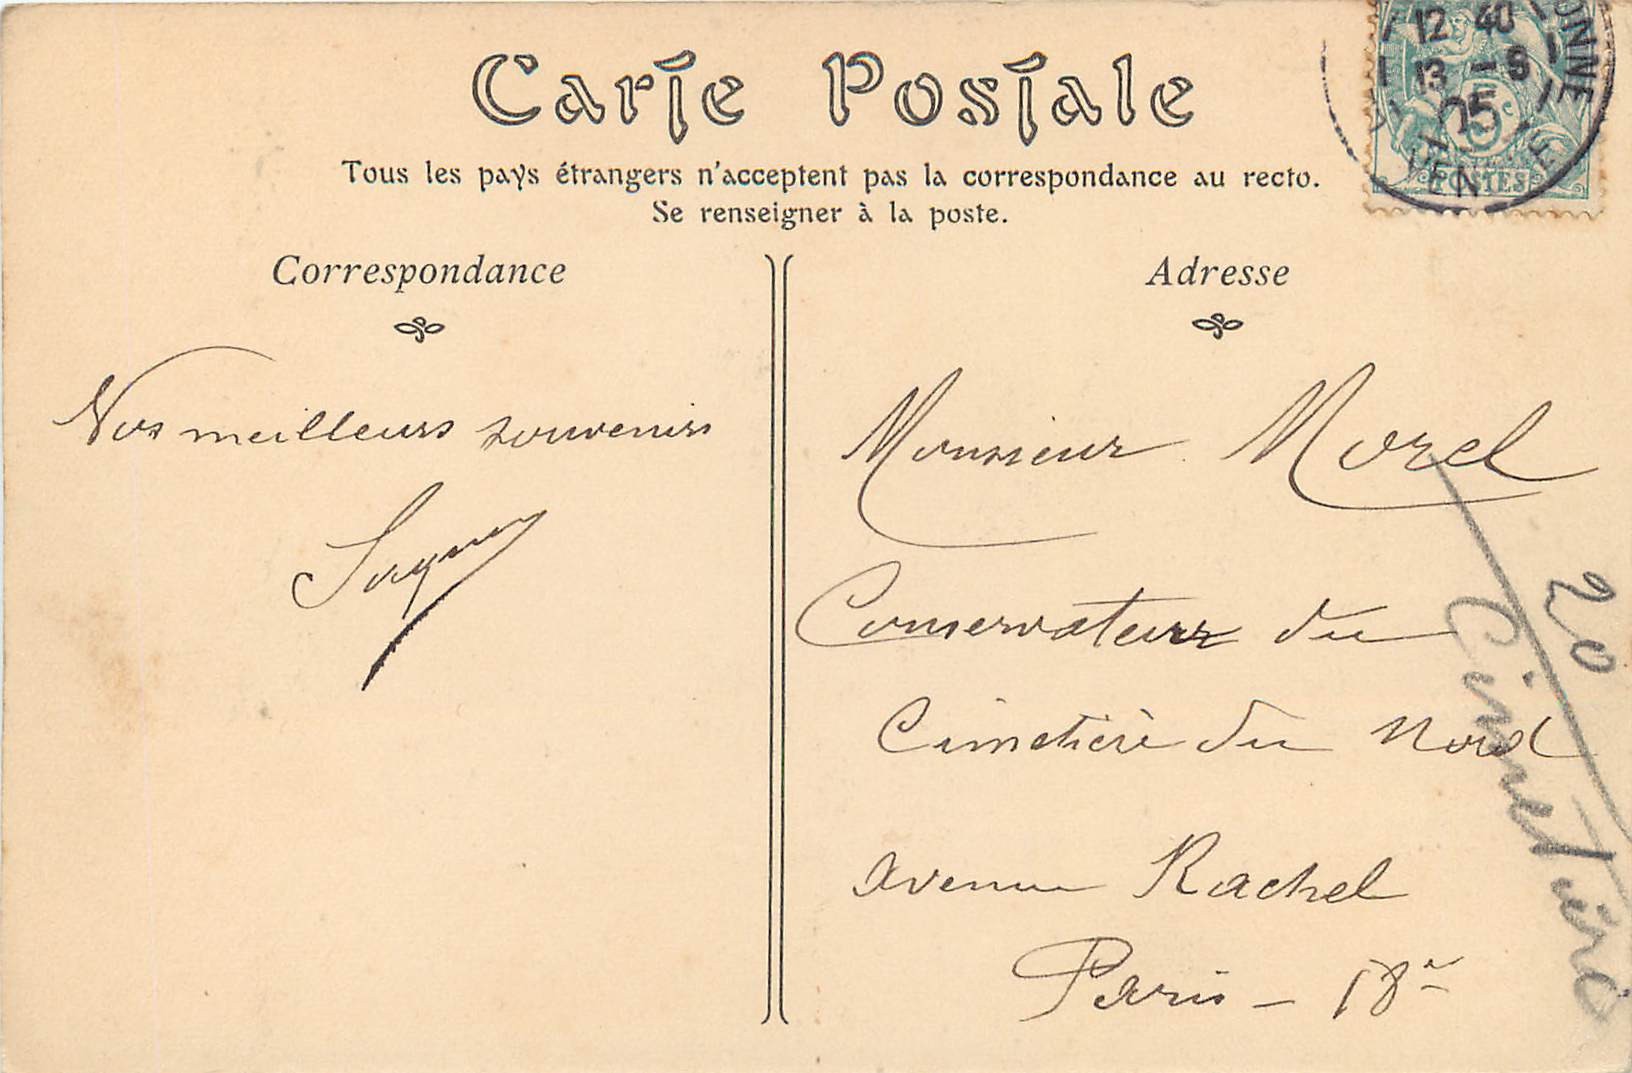 Carte Postale
Tous les pays étrangers n'acceptent pas la correspondance au recto.
Se renseigner à la poste.
Correspondance
Adresse
12 40
13 - 9
05
POSTES
Nos meilleurs souvenirs
Monsieur Morel
Conservateur du
Cimetière du Nord
avenue Rachel
Paris - 18e
20
Cimetière